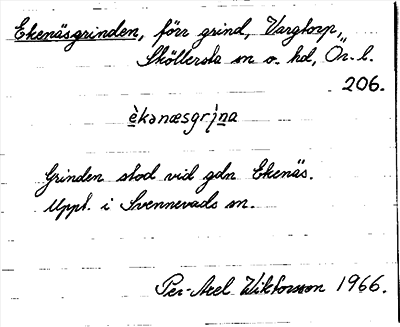 Ekenäsgrinden, förr grind, Vargtorp,
Sköllersta sn o. hd, Ör. l.
206.
è̱kənæsgri̱ṉa
Grinden stod vid gdn Ekenäs.
Uppt. i Svennevads sn.
Per-Axel Wiktorsson 1966.